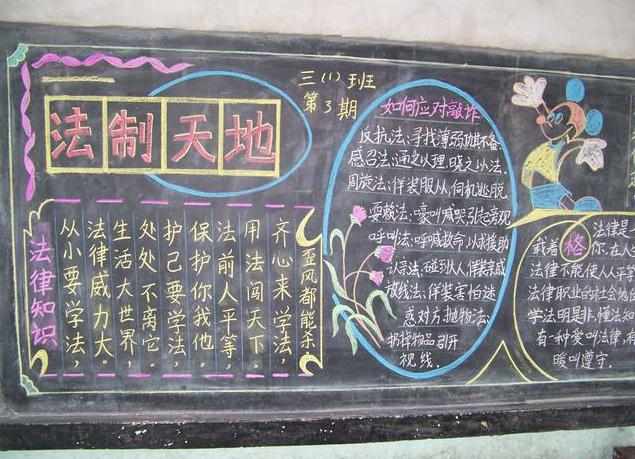 三(1)班
第3期
法制天地
法律知识
从小要学法，
法律威力大。
生活大世界，
处处不离它。
护己要学法，
保护你我他。
法前人平等，
用法闯天下。
齐心来学法，
歪风都能杀。
如何应对敲诈
反抗法：寻找薄弱攻其不备
感召法：通之以理，晓之以法．
周旋法：佯装服从伺机逃脱．
耍赖法：嚎叫喊哭引起发现
呼叫法：呼喊救命以求援助
认亲法：碰到大人佯装亲戚
放线法：佯装害怕迷
惑对方．抛物法：
扔掉物品引开
视线．
法律是
戴着 格 你．在人
法律不能使人人平等
法律职业的社会地
学法，明是非，懂法知
有一种爱叫法律，有
暖叫遵守．